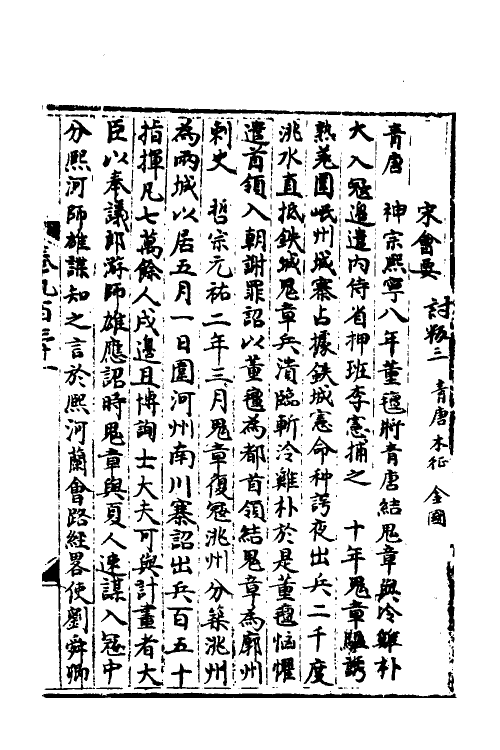 宋會要
討叛三 青唐 木征 金國
青唐 神宗熙寧八年董氊將青唐結鬼章與冷雞朴
大入冦邊遣内侍省押班李憲捕之 十年鬼章驅誘
熟羌圍岷州城寨占據鉄城憲命种諤夜出兵二千度
洮水直抵鉄城鬼章兵潰臨斬冷雞朴於是董氊惱懼
遣首領入朝謝罪詔以董氊為都首領結鬼章為廓州
刺史 哲宗元祐二年三月鬼章復冦洮州分築洮州
為兩城以居五月一日圍河州南川寨詔出兵百五十
指揮凡七萬餘人戍邊且博詢士大夫可與計畫者大
臣以奉議郎游師雄應詔時鬼章與夏人連謀入冦中
分熙河師雄諜知之言於熙河蘭會路經畧使劉舜卿